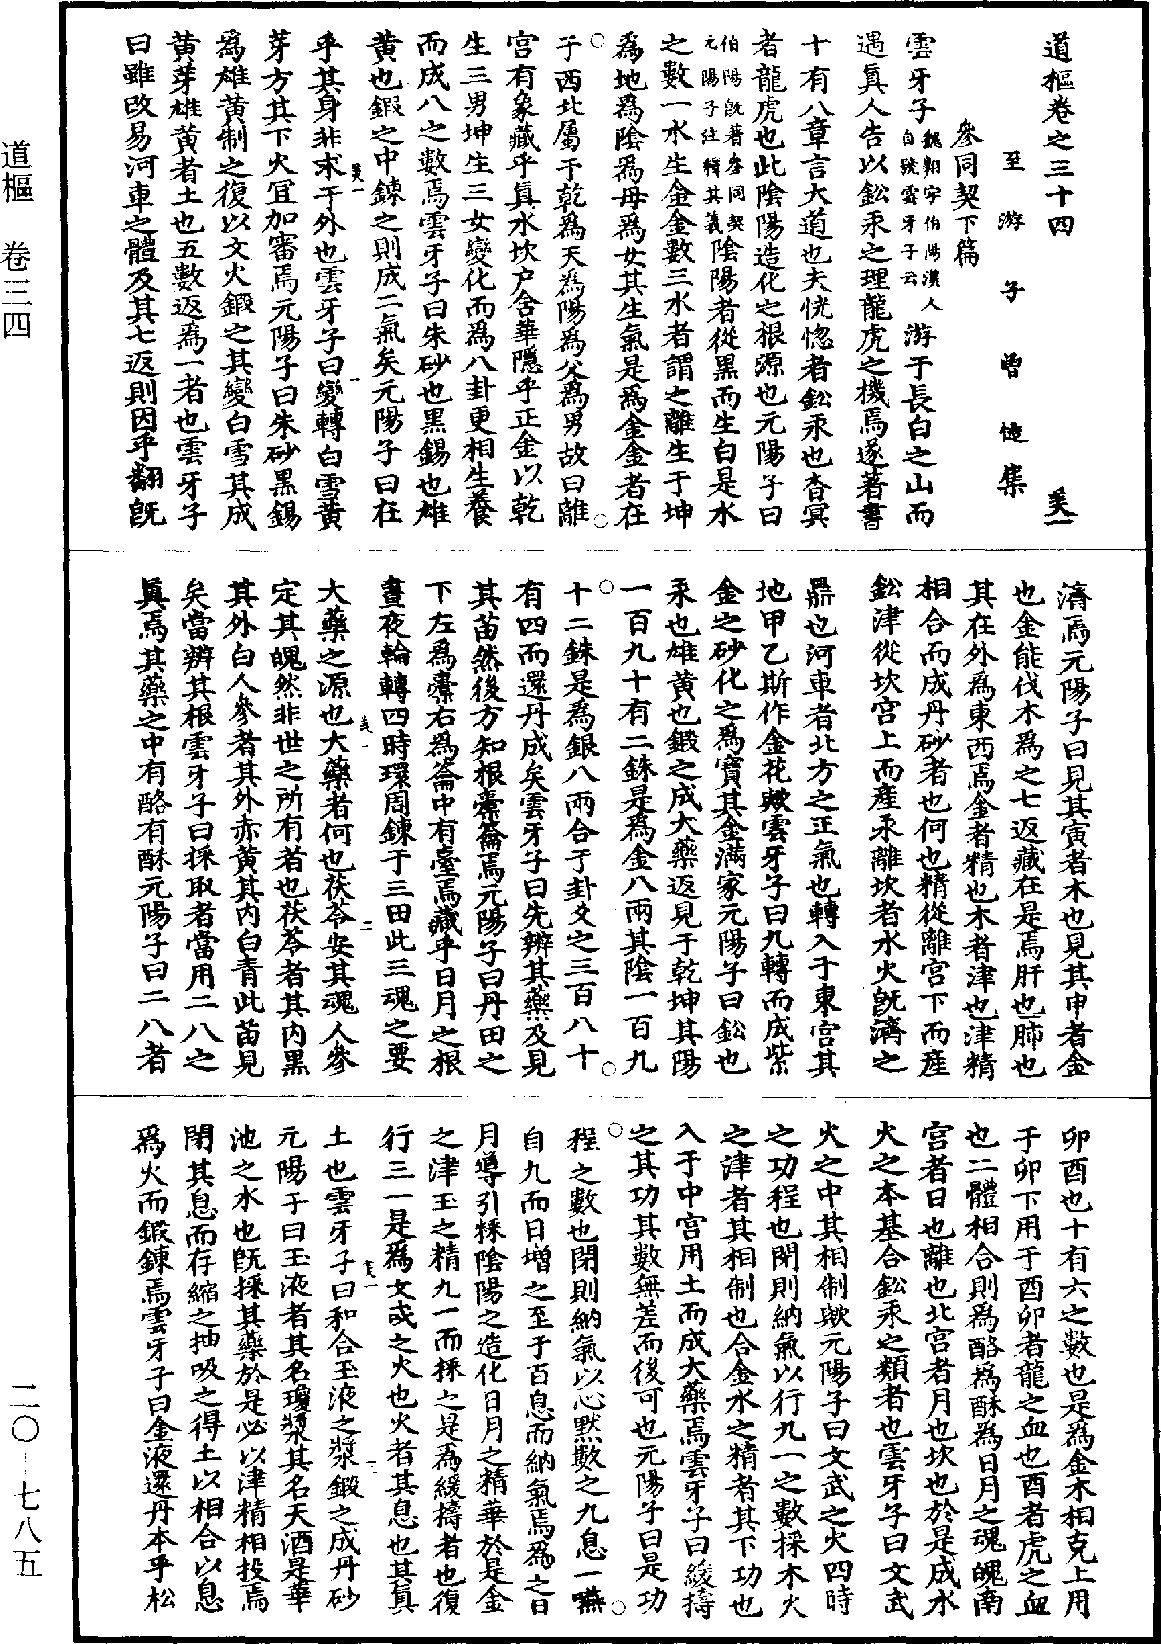 道樞卷之三十四 美一
至游子曾慥集
參同契下篇
雲牙子魏翱字伯陽漢人自號雲牙子云游于長白之山而
遇真人告以鈆汞之理龍虎之機焉遂著書
十有八章言大道也夫恍惚者鈆汞也杳冥
者龍虎也此陰陽造化之根源也元陽子曰
伯陽旣著參同契元陽子注釋其義陰陽者從黑而生白是水
之數一水生金金數三水者謂之離生于坤
為地為陰為母為女其生氣是為金金者在
子西北屬于乾為天為陽為父為男故曰離
宮有象藏乎真水坎户含華隱乎正金以乾
生三男坤生三女變化而為八卦更相生養
而成八之數焉雲牙子曰朱砂也黑錫也雄
黃也鍜之中鍊之則成二氣矣元陽子曰在
乎其身非求于外也雲牙子曰變轉白雪黃
芽方其下火冝加審焉元陽子曰朱砂黑錫
為雄黃制之復以文火鍜之其變白雪其成
黃芽雄黃者土也五數返為一者也雲牙子
曰雖改易河車之體及其七返則因乎翻旣
濟焉元陽子曰見其寅者木也見其申者金
也金能伐木為之七返藏在是焉肝也肺也
其在外為東西焉金者精也木者津也津精
相合而成丹砂者也何也精從離宮下而産
鈆津從坎宮上而産汞離坎者水火旣濟之
鼎也河車者北方之正氣也轉入于東宮其
地甲乙斯作金花歟雲牙子曰九轉而成紫
金之砂化之為寶其金滿家元陽子曰鈆也
汞也雄黃也鍛之成大藥返見于乾坤其陽
一百九十有二銖是為金八兩其陰一百九
十二銖是為銀八兩合于卦爻之三百八十
有四而還丹成矣雲牙子曰先辨其藥及見
其苗然後方知根橐籥焉元陽子曰丹田之
下左為橐右為籥中有臺焉藏乎日月之根
晝夜輪轉四時環周鍊于三田此三魂之要
大藥之源也大藥者何也茯苓安其魂人參
定其魄然非世之所有者也茯苓者其内黑
其外白人參者其外赤黃其内白青此苗見
矣當辨其根雲牙子曰採取者當用二八之
真焉其藥之中有酪有酥元陽子曰二八者
卯酉也十有六之數也是為金木相克上用
于卯下用于酉卯者龍之血也酉者虎之血
也二體相合則為酪為酥為日月之魂魄南
宮者日也離也北宮者月也坎也於是成水
火之本基合鈆汞之類者也雲牙子曰文武
火之中其相制歟元陽子曰文武之火四時
之功程也閉則納氣以行九一之數採木火
之津者其相制也合金水之精者其下功也
入于中宮用土而成大藥焉雲牙子曰緩擣
之其功其數無差而後可也元陽子曰是功
程之數也閉則納氣以心默數之九息一嚥
自九而日增之至于百息而納氣焉為之日
月導引秌陰陽之造化日月之精華於是金
之津玉之精九一而秌之是為緩擣者也復
行三一是為文武之火也火者其息也其真
土也雲牙子曰和合玉液之漿鍛之成丹砂
元陽子曰玉液者其名瓊漿其名天酒是華
池之水也旣採其藥於是必以津精相投焉
閉其息而存縮之抽吸之得土以相合以息
為火而鍛鍊焉雲牙子曰金液還丹本乎松
道樞 卷三四
二〇—七八五